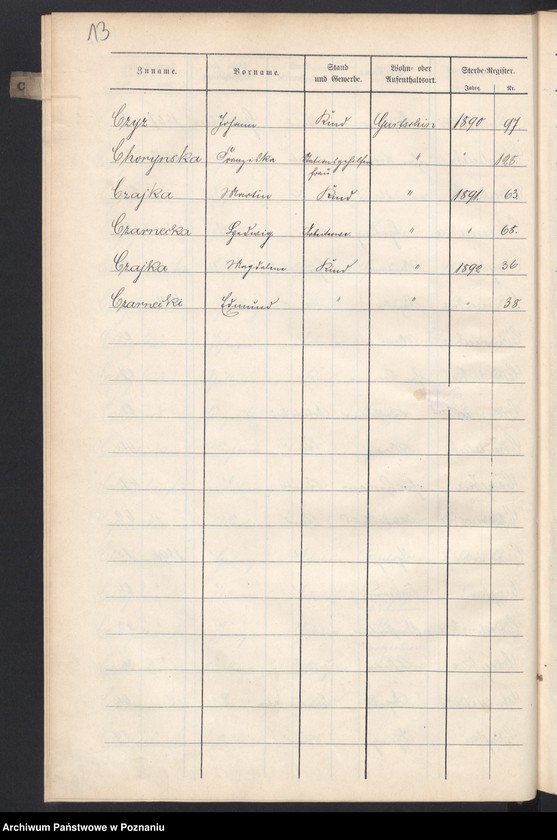 13
C
Zuname. Vorname. Stand und Gewerbe. Wohn- oder Aufenthaltsort. Sterbe-Register.
Jahrg. Nr.
Czyż Johann Kind 1890 97.
Chorynska Franziska frau " " 128
Czajka Martin Kind " 1891. 63.
Czarnecka Hedwig " " 68.
Czajka Magdalene Kind " 1892 36
Czarnecki Edmund " " " 38.
Archiwum Państwowe w Poznaniu